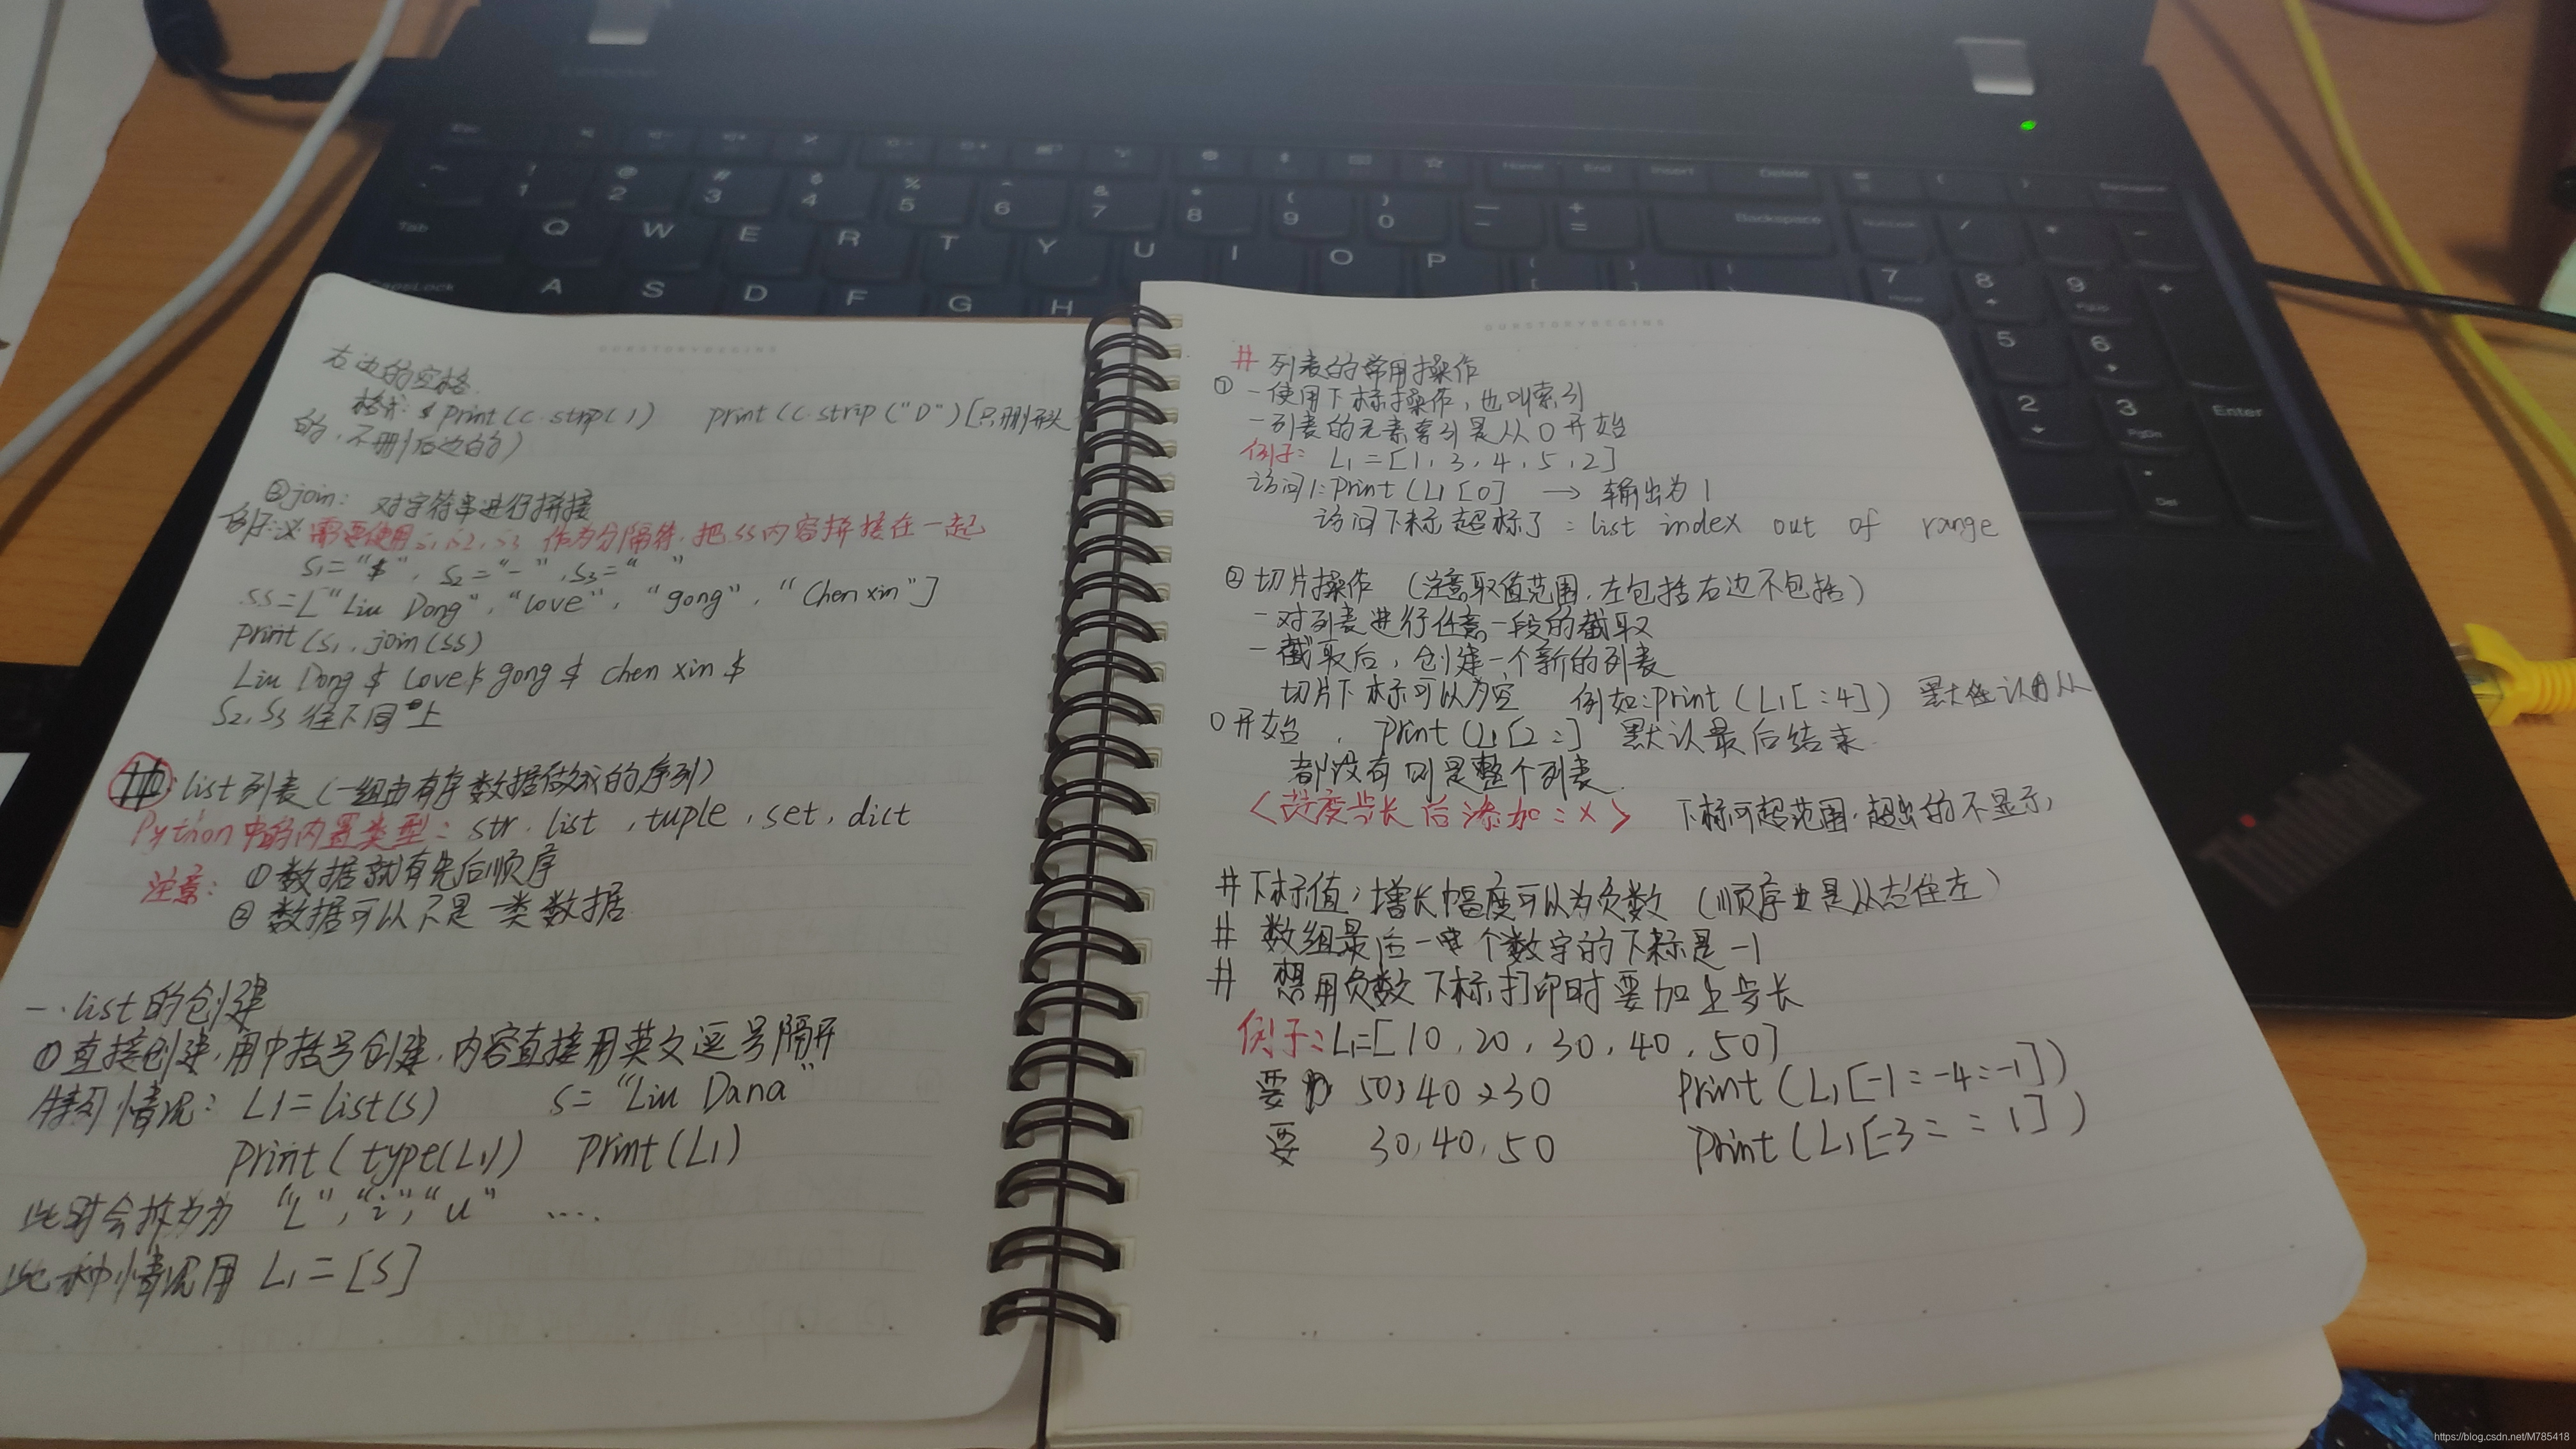 OURSTORYBEGINS
右边的空格
格式: print(c.strip() print(c.strip("D")[只删开头
的,不删后边的)
②join: 对字符串进行拼接
例子: 需要使用s1,s2,s3 作为分隔符,把ss内容拼接在一起
S1="$", S2="-", S3=" "
ss=["Liu Dong","love","gong","Chenxin"]
print(S1.join(ss)
Liu Dong $ love $ gong $ chen xin $
S2,S3 往下同上
list列表(一组由有序数据做成的序列)
Python中的内置类型: str. list ,tuple,set,dict
注意: ①数据就有先后顺序
②数据可以不是一类数据
一.list的创建
①直接创建,用中括号创建,内容直接用英文逗号隔开
特列情况: L1=list(s) s="Liu Dana"
print(type(L1)) print(L1)
此时会拆分为 "L","i","u" ....
此种情况用 L1=[S]
OURSTORYBEGINS
# 列表的常用操作
① -使用下标操作,也叫索引
-列表的元素索引是从0开始
例子: L1=[1,3,4,5,2]
访问1:print(L1[0] → 输出为1
访问下标超标了:list index out of range
②切片操作 (注意取值范围,左包括右边不包括)
-对列表进行任意一段的截取
-截取后,创建一个新的列表
切片下标可以为空 例如:print(L1[:4]) 默认从
0开始 , print(L1[2:] 默认最后结束.
都没有则是整个列表.
步长后添加:x> 下标可超范围,超出的不显示,
#下标值,增长幅度可以为负数 (顺序是从右往左)
# 数组最后一个数字的下标是-1
# 想用负数下标,打印时要加上步长
例子:L1=[10,20,30,40,50]
要 50,40,30 print(L1[-1:-4:-1])
要 30,40,50 print(L1[-3::1])
https://blog.csdn.net/M785418